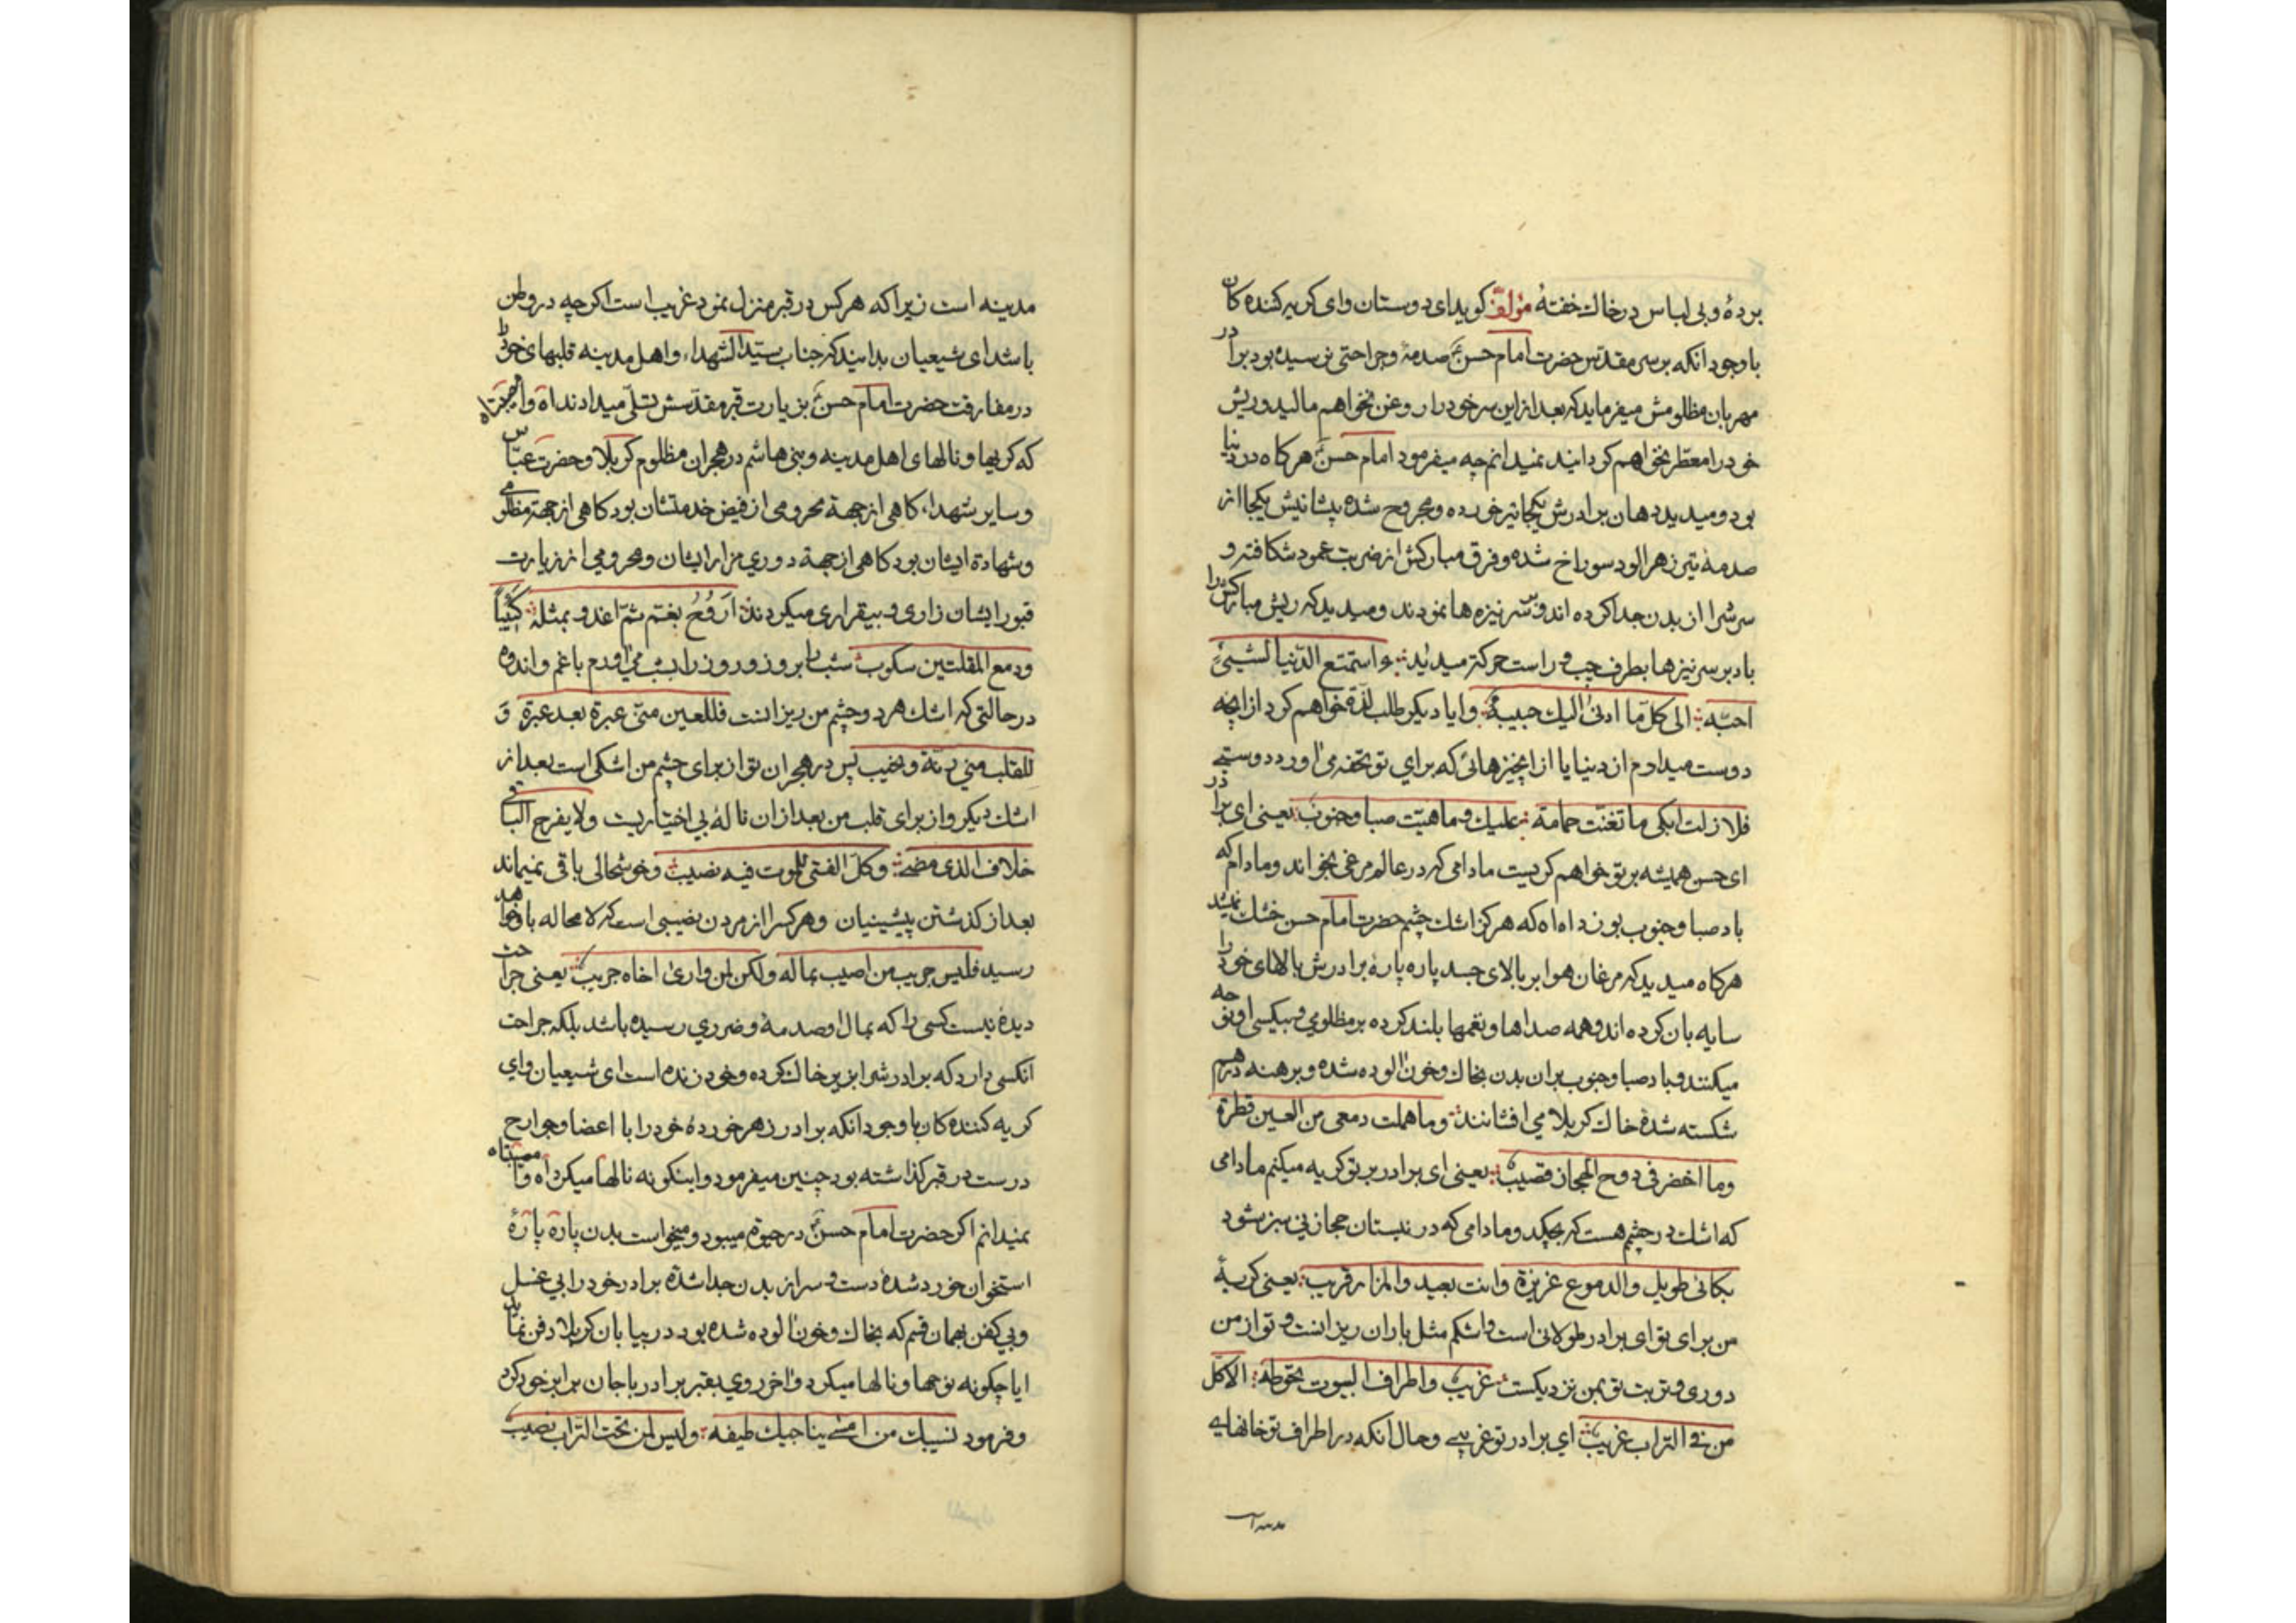 برده و بی لباس در خاك خفتهٔ مؤلف كوید ای دوستان وای كریه كننده كان
باوجود انكه بر سر مقدس حضرت امام حسن صدمهٔ و جراحتی نرسیده بود برادر
مهربان مظلومش میفرماید كه بعد از این سر خود را روغن نخواهم مالید و ریش
خود را معطر نخواهم كردانید نمیدانم چه میفرمود امام حسن هركاه در دنیا
بود و میدید دهان برادرش یكجا تیر خورده و مجروح شده پیشانیش یكجا از
صدمهٔ تیر زهر الود سوراخ شده و فرق مباركش از ضربت عمود شكافته و
سرش را از بدن جدا كرده اند و بر سر نیزه ها نمودند و میدید كه ریش مباركش را
باد بر سر نیزها بطرف چپ و راست حركة میدید و استمتع الدنیا لشیئ
احبه الی كل ما ادنی الیك حبیب و ایا دیكر طلب لذة خواهم كرد از انچه
دوست میدارم از دنیا یا از انچیزهائی كه برای تو تحفه می اورد دوستی
فلا زلت ابكی ما تغنت حمامة علیك و ما هبت صبا و جنوب یعنی ای برادر
ای حسن همیشه بر تو خواهم كریست مادامی كه در عالم مرغی بخواند و مادام كه
باد صبا و جنوب بوزد اه اه كه هركز اشك چشم حضرت امام حسن خشك نمیشد
هركاه میدید كه مرغان هوا بر بالای جسد پاره پارهٔ برادرش بالهای خود را
سایه بان كرده اند و همه صداها و نغمها بلند كرده بر مظلومی و بیكسی او نوحه
میكنند و باد صبا و جنوب بران بدن بخاك و خون الوده شده و برهنه درهم
شكسته شدهٔ خاك كربلا می افشانند و ما هملت دمعی من العین قطرة
و ما اخضر فی دوح الحجاز قضیب یعنی ای برادر بر تو كریه میكنم مادامی
كه اشك در چشم هست كه بچكد و مادامی كه در نیستان حجاز نی سبز شود
بكائی طویل و الدموع غزیزة و انت بعید و المزار قریب یعنی كریهٔ
من برای تو ای برادر طولانی است و اشكم مثل باران ریزانست و تو از من
دوری و تربت تو بمن نزدیكست غریب و اطراف البیوت تحوطه الا كل
من فی التراب غریب ای برادر تو غریبی و حال انكه در اطراف تو خانهای
مدینه است
مدینه است زیرا كه هركس در قبر منزل نمود غریب است اكرچه در وطن
باشد ای شیعیان بدانید كه جناب سید الشهداء و اهل مدینه قلبهای خود را
در مفارقت حضرت امام حسن بزیارت قبر مقدسش تسلی میدادند اه
كه كریها و نالهای اهل مدینه و بنی هاشم در هجران مظلوم كربلا و حضرت عباس
و سایر شهداء كاهی از جهة محرومی از فیض خدمتشان بود كاهی از جهة مظلومی
و شهادة ایشان بود كاهی از جهة دوری مزار ایشان و محرومی از زیارت
قبور ایشان زاری و بیقراری میكردند اروح بغم ثم اغدو بمثله كئیبا
و دمع المقلتین سكوب شب را بروز و روز را بشب می اورم با غم و اندوه
در حالتی كه اشك هر دو چشم من ریزانست فللعین منی عبرة بعد عبرة و
للقلب منی رنة و نحیب پس در هجران تو از برای چشم من اشكی است بعد از
اشك دیكر و از برای قلب من بعد از ان نالهٔ بی اختیاریست و لا یفرح الباقی
خلاف الذی مضی و كل الفتی للموت فیه نصیب و خوشحالی باقی نمیماند
بعد از كذشتن پیشینیان و هركس را از مردن نصیبی است كه لا محاله باو خواهد
رسید فلیس حریب من اصیب بماله و لكن لمن واری اخاه حریب یعنی جراحت
دیده نیست كسی را كه بمال او صدمهٔ و ضرری رسیده باشد بلكه جراحت
انكسی دارد كه برادرش را بزیر خاك كرده و خود زنده است ای شیعیان وای
كریه كننده كان با وجود انكه برادر زهر خوردهٔ خود را با اعضا و جوارح
درست در قبر كذاشته بود چنین میفرمود و اینكونه نالها میكرد اه وا مصیبتاه
نمیدانم اكر حضرت امام حسن در حیوة میبود و میخواست بدن پاره پارهٔ
استخوان خورد شدهٔ دست و سر از بدن جدا شدهٔ برادر خود را بی غسل
و بی كفن بهمان قسم كه بخاك و خون الوده شده بود در بیابان كربلا دفن نماید
ایا چكونه نوحها و نالها میكرد و اخر روی بقبر برادر با جان برابر خود كرد
و فرمود نسیبك من امسی یناجیك طیفه و لیس لمن تحت التراب نصیب